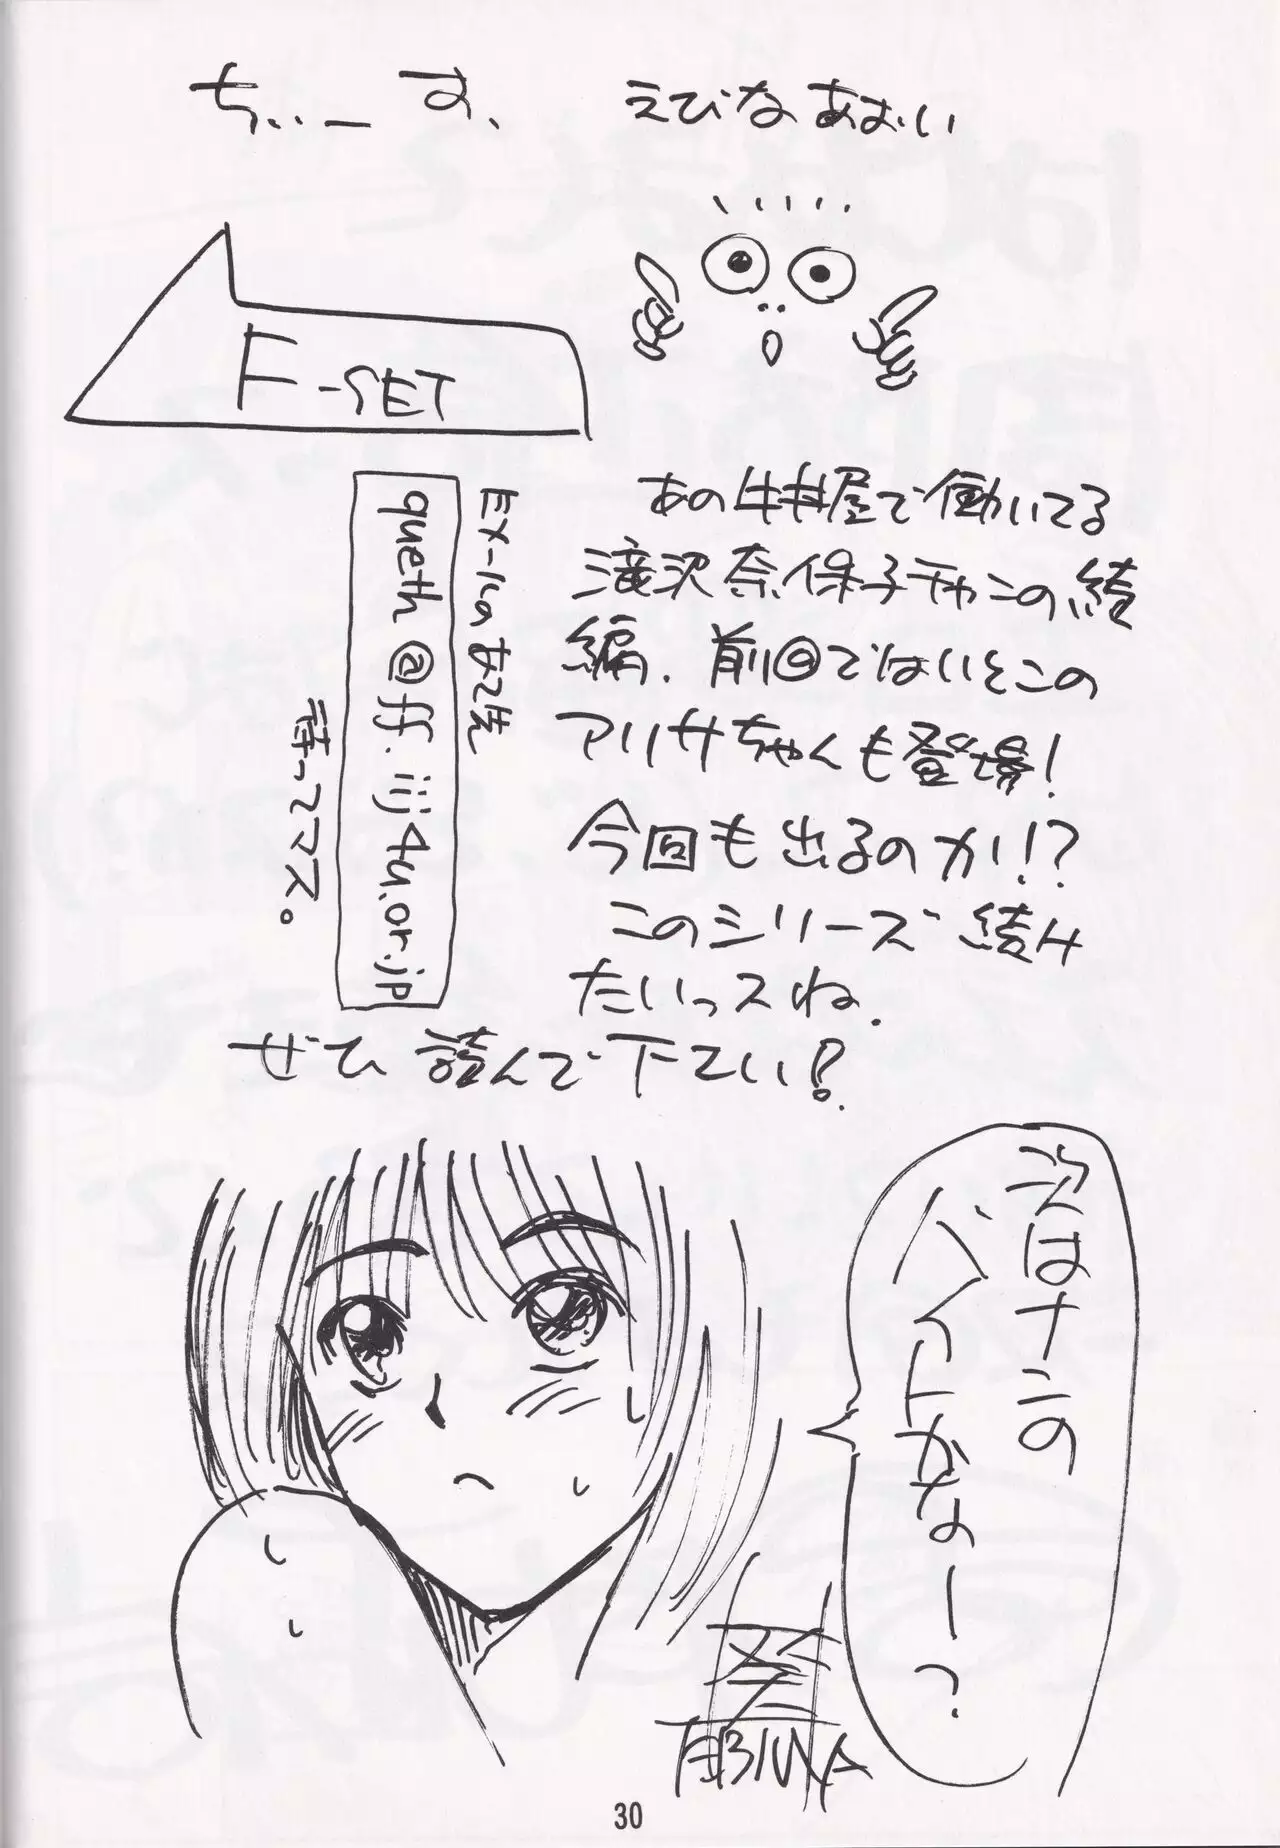 ちぃーす、 えびなあおい
F-SET
あの牛丼屋で働いてる
滝沢奈保子チャンの続
編. 前回ではいとこの
アリサちゃんも登場!
今回も出るのか!!?
このシリーズ続け
たいっスね.
Eメールのあて先
queth@ff.iij4u.or.jp
待ってマス。
ぜひ読んで下さい!
次はナンの
バイトかなーっ?
葵
EBINA
30